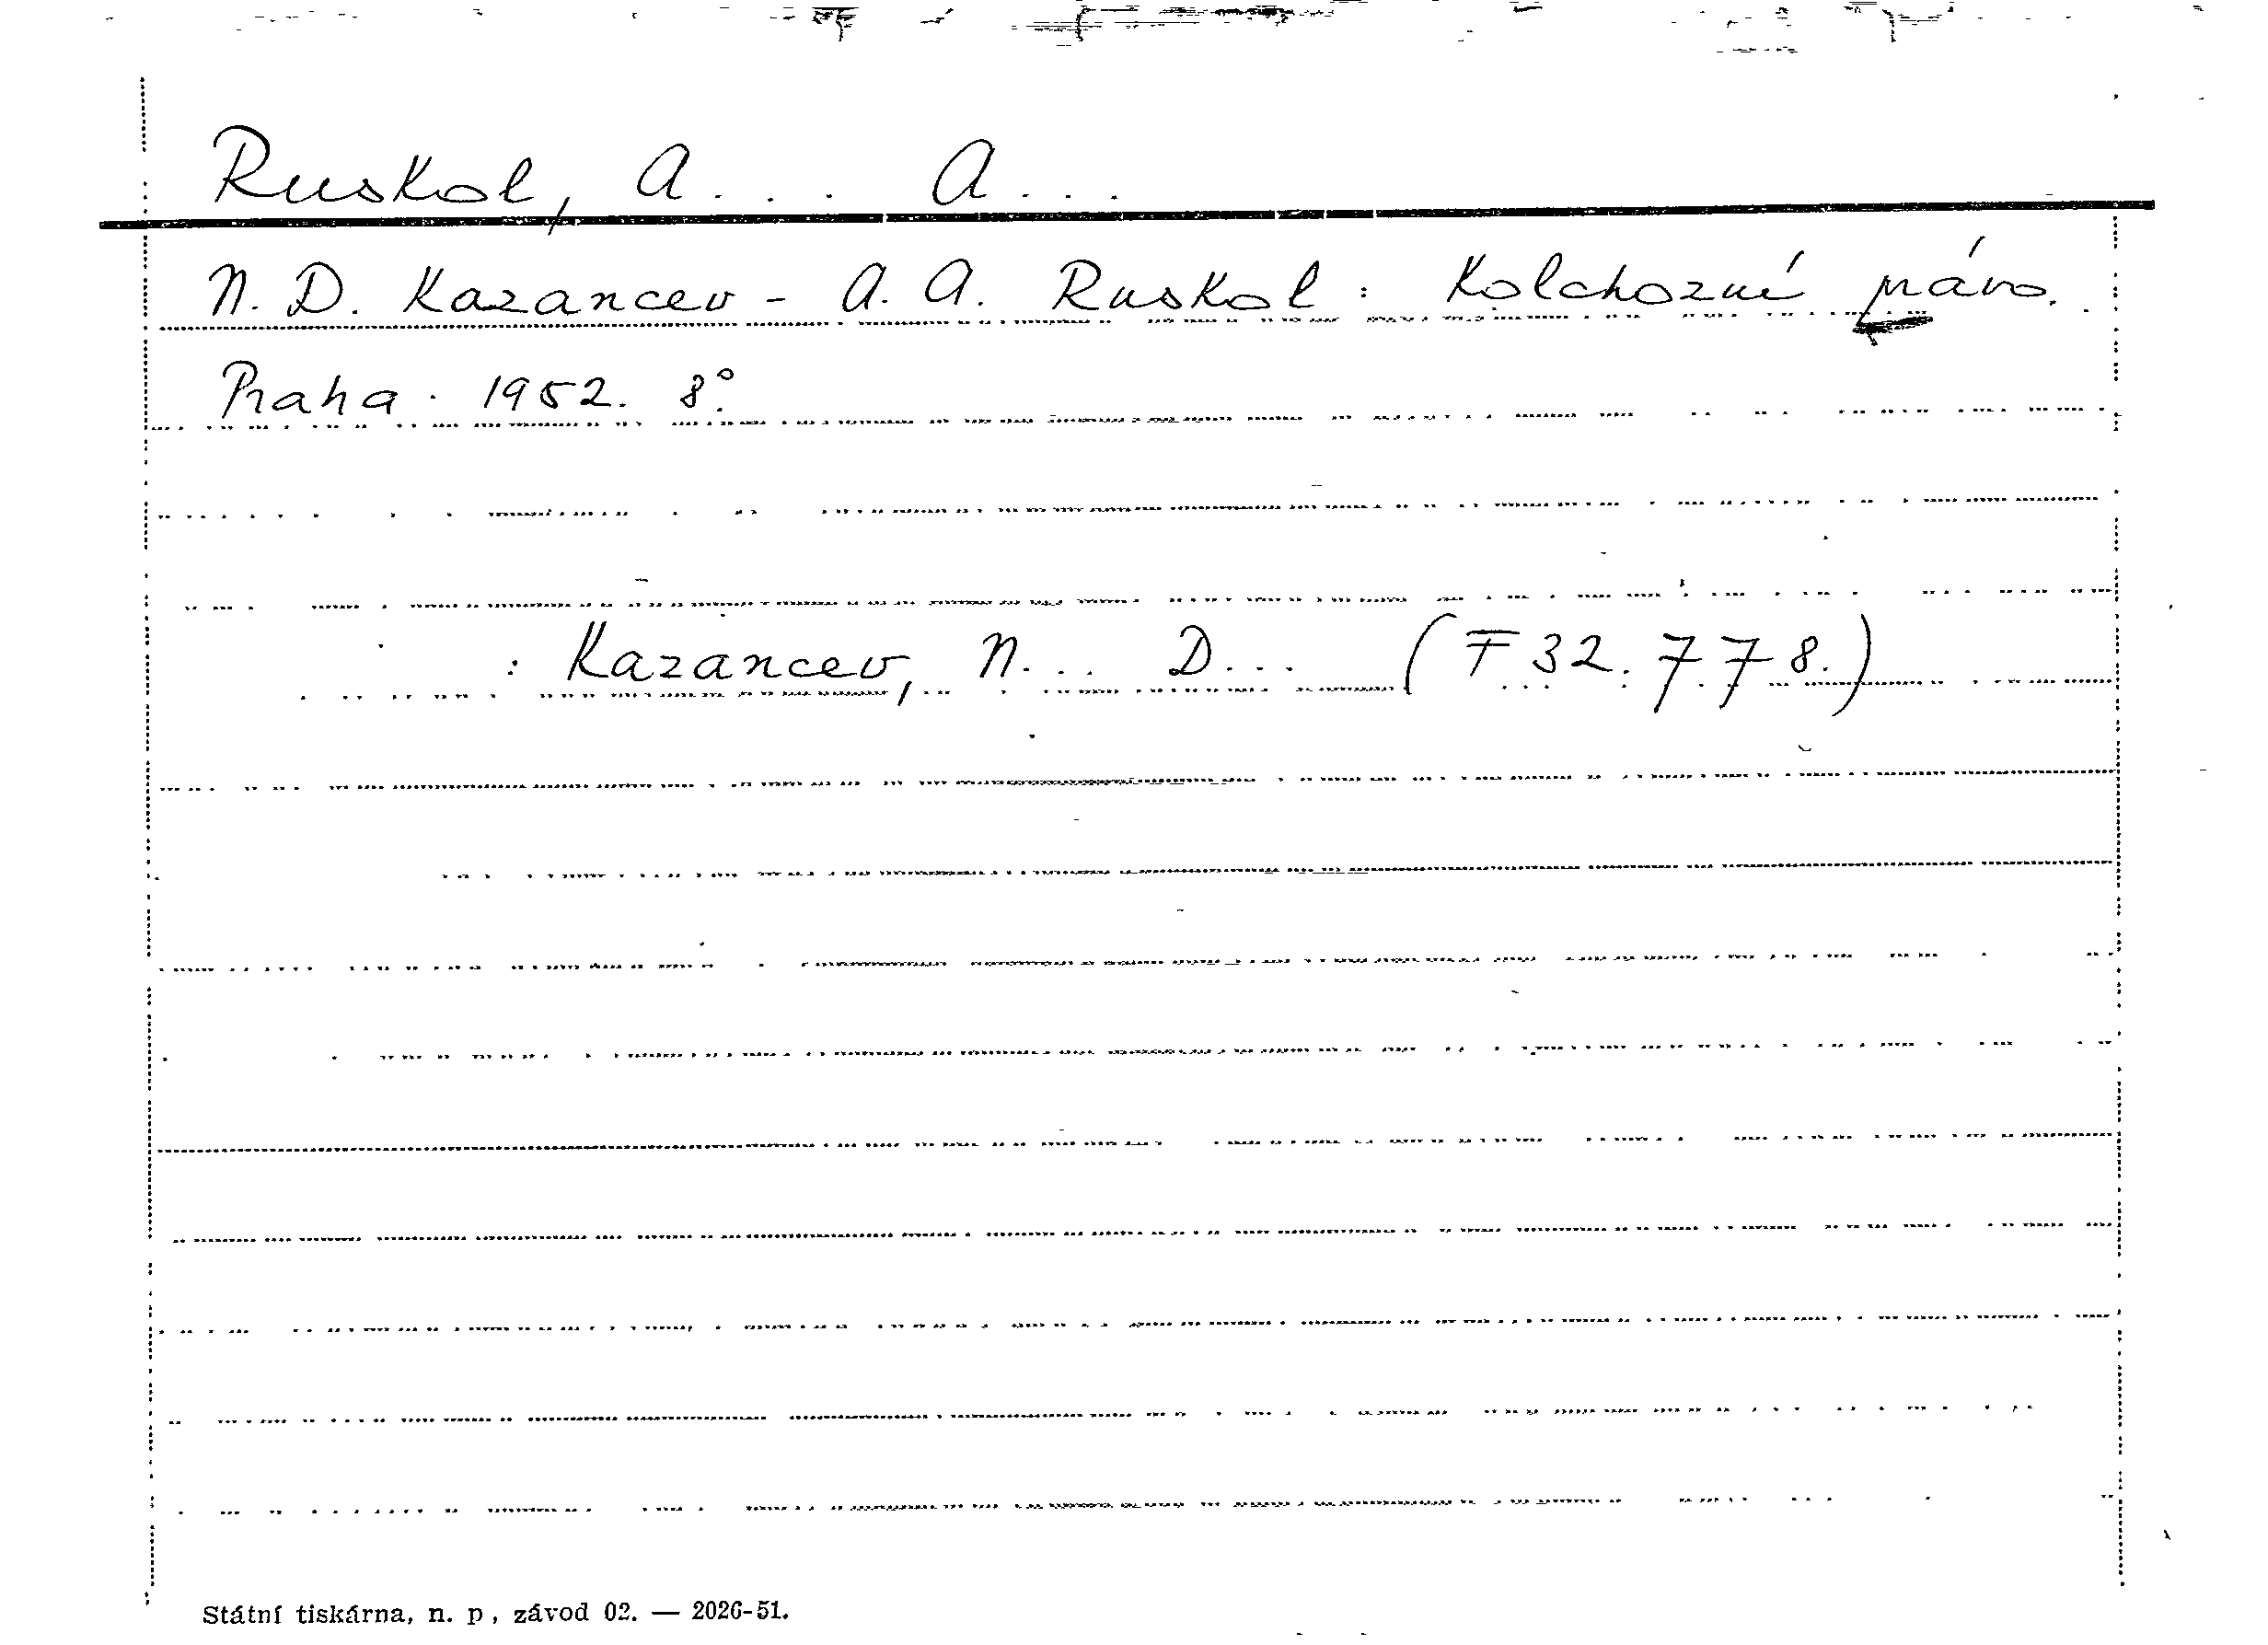 Ruskol, A... A...
N. D. Kazancev - A. A. Ruskol: Kolchozní právo.
Praha. 1952. 8°.
: Kazancev, N... D... (F 32.778.)
Státní tiskárna, n. p., závod 02. — 2026-51.